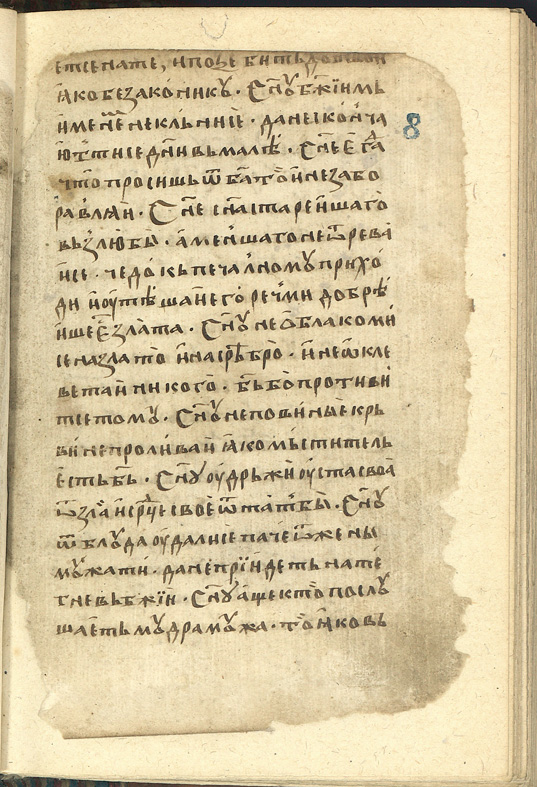 ѥтсе на те, и по
ꙗко безаконикꙋ · Сн҃ꙋ бж҃їимь
именемь не кльниѥ · да не сконча
ют се дн҃и вь малѣ · Сн҃е ѥгда
что просишь ѿ ба҃ то и не забо
равлꙗи · Сн҃е сн҃а стареишаго
вьзлюбы · а меншаго не ѿрева
и се · чедо кь печалномꙋ прихо
ди и оутѣшаи его речми добрѣ
ише ѥ злата · Сн҃ꙋ не облакоми
се на злато и на срѣбро · и не ѡкле
ветаи никого · бь҃ бо противи
т се томꙋ · Сн҃ꙋ неповиныѥ крь
ви не проливаи ꙗко мьститель
ѥсть бь҃ · Сн҃ꙋ оудрьжи оуста своꙗ
ѿ зла и рꙋце свое ѿ татбы · Сн҃ꙋ
ѿ блꙋда оудали се паче ѿ жены
мꙋжати · да не прїидеть на те
гневь бж҃їи · Сн҃ꙋ аще кто послꙋ
шаѥть мꙋдра мꙋжа · то ꙗко вь
8